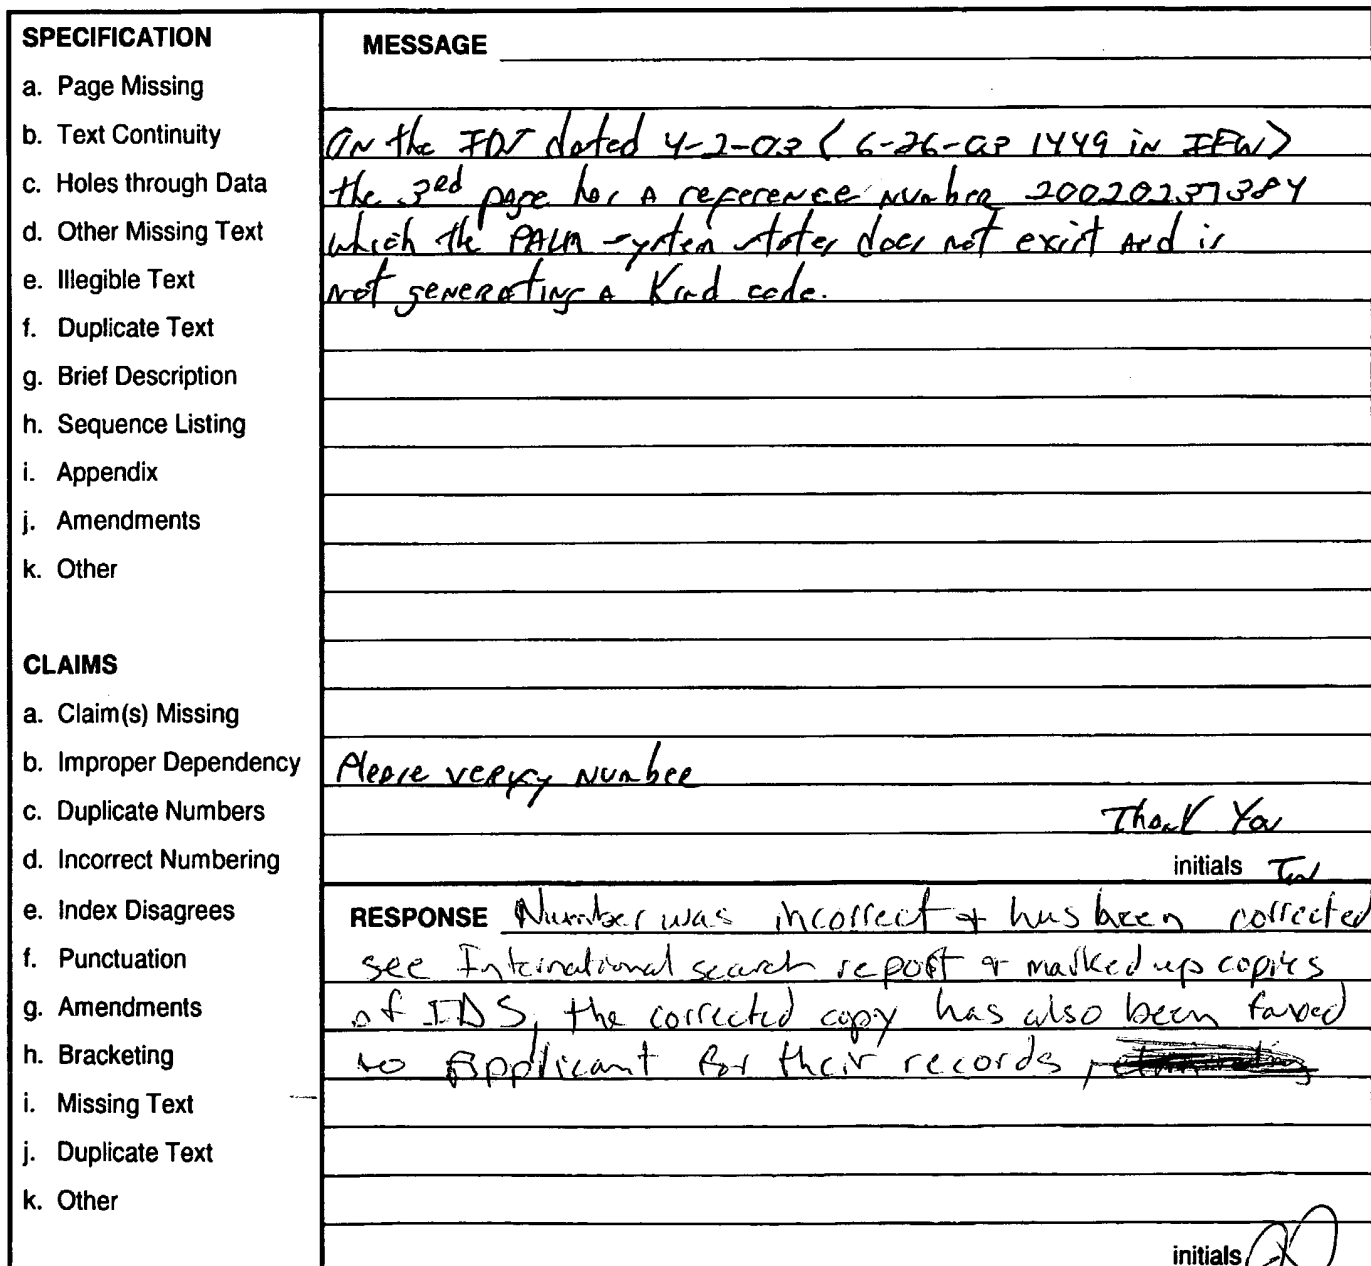 SPECIFICATION
a. Page Missing
b. Text Continuity
c. Holes through Data
d. Other Missing Text
e. Illegible Text
f. Duplicate Text
g. Brief Description
h. Sequence Listing
i. Appendix
j. Amendments
k. Other
CLAIMS
a. Claim(s) Missing
b. Improper Dependency
c. Duplicate Numbers
d. Incorrect Numbering
e. Index Disagrees
f. Punctuation
g. Amendments
h. Bracketing
i. Missing Text
j. Duplicate Text
k. Other
MESSAGE
On the IDS dated 4-2-03 (6-26-03 1449 in IFW)
the 3rd page has a reference number 20020237384
which the PALM system states does not exist and is
not generating a Kind code.
Please verify number
Thank You
initials TW
RESPONSE Number was incorrect + has been corrected
see International search report + marked up copies
of IDS, the corrected copy has also been faxed
to Applicant for their records
initials